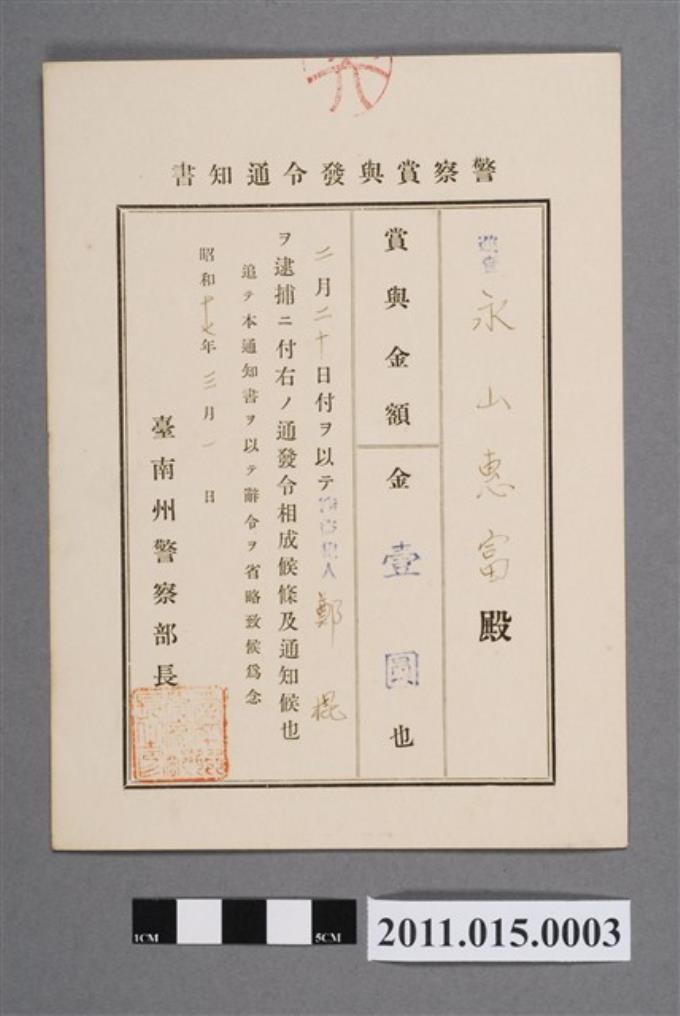 警察賞與發令通知書
巡查 永山惠富殿
賞與金額
金壹圓也
二月二十日付ヲ以テ犯人鄭棍
ヲ逮捕ニ付右ノ通發令相成候條及通知候也
追テ本通知書ヲ以テ辭令ヲ省略致候爲念
昭和十七年三月一日
臺南州警察部長
1CM
5CM
2011.015.0003